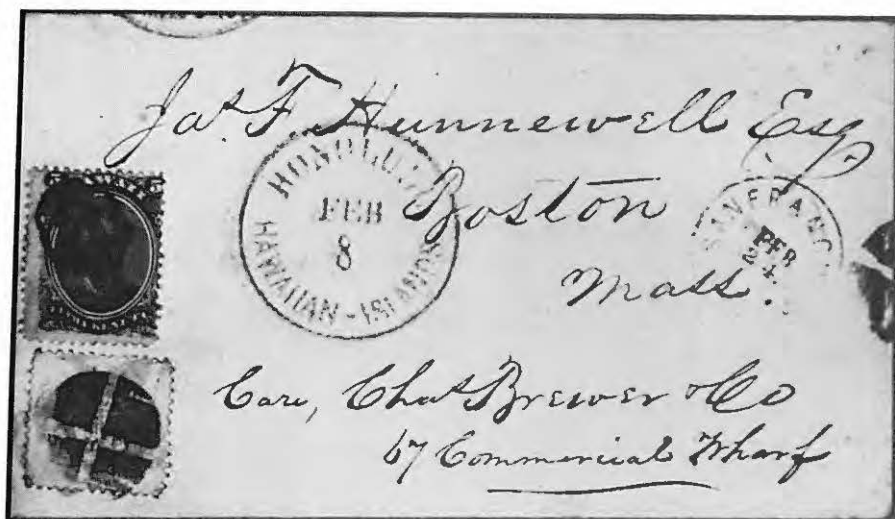 Jas F. Hunnewell Esq
Boston
Mass.
HONOLULU
FEB
8
HAWAIIAN-ISLANDS
SAN FRANC
FEB
24
Care, Chas Brewer & Co
67 Commercial Wharf